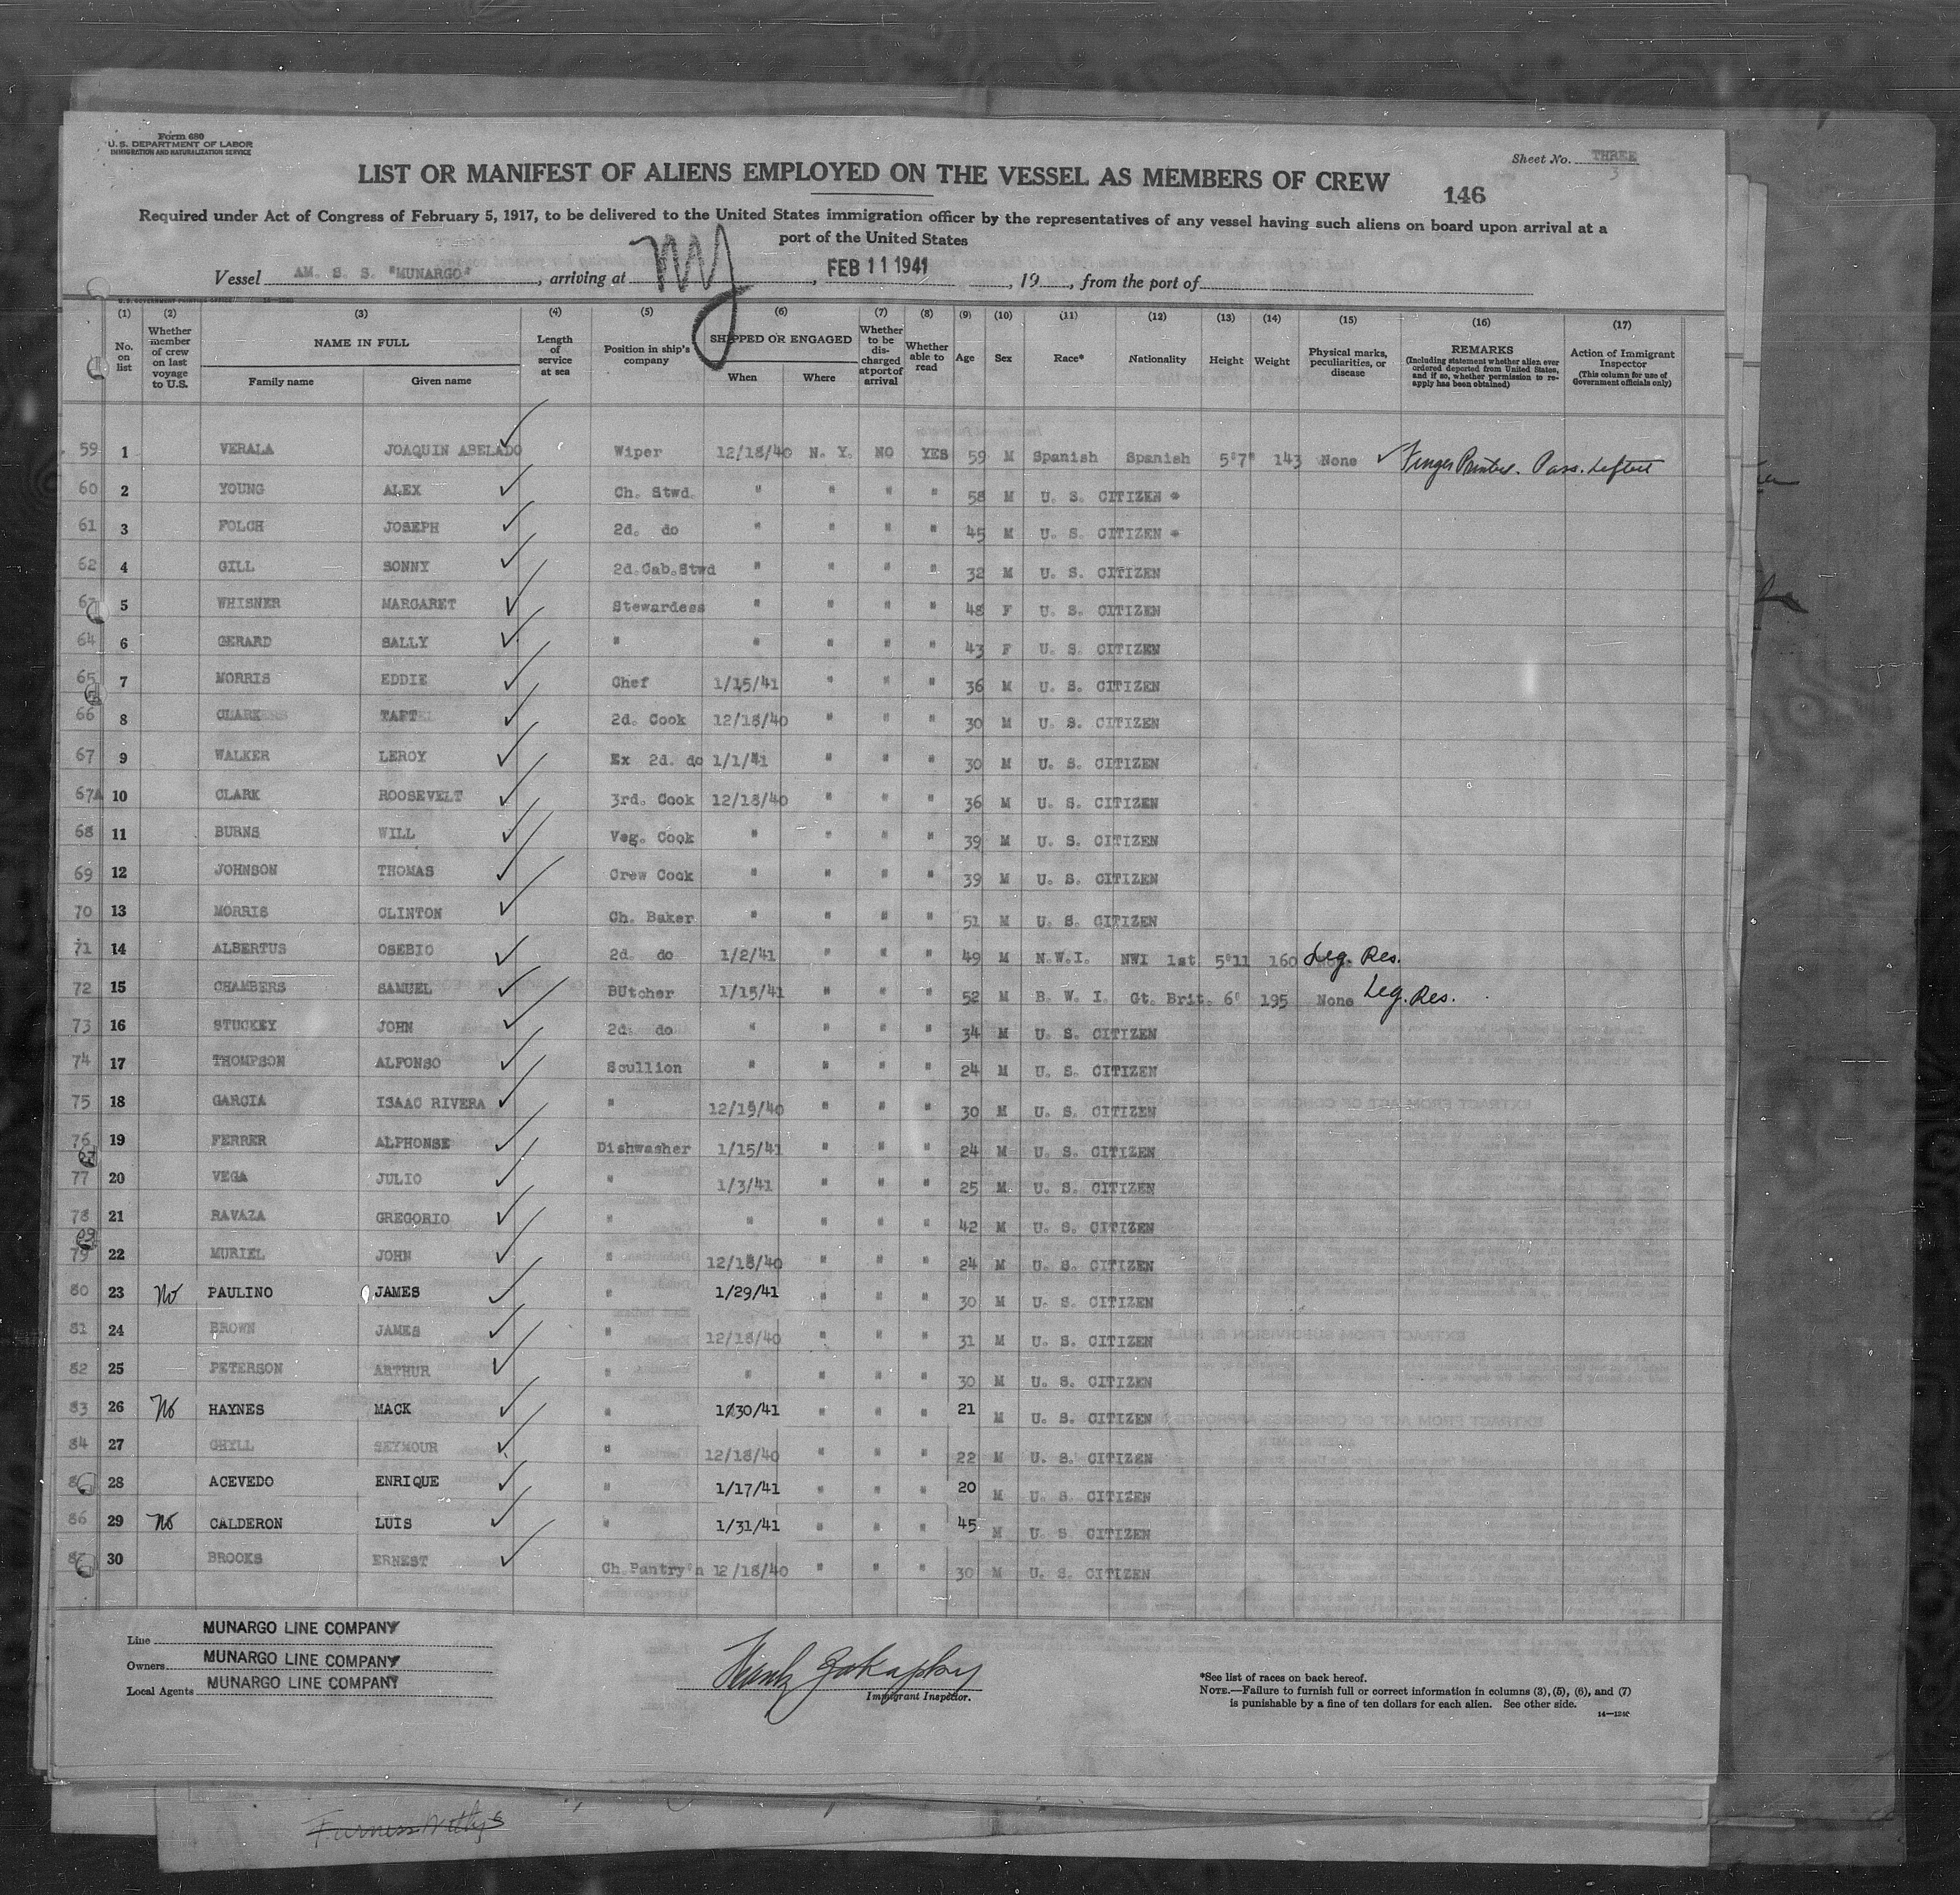 Form 680
U. S. DEPARTMENT OF LABOR
IMMIGRATION AND NATURALIZATION SERVICE
Sheet No. THREE
3
LIST OR MANIFEST OF ALIENS EMPLOYED ON THE VESSEL AS MEMBERS OF CREW 146
Required under Act of Congress of February 5, 1917, to be delivered to the United States immigration officer by the representatives of any vessel having such aliens on board upon arrival at a
port of the United States
Vessel AM. S. S. "MUNARGO", arriving at NY, FEB 11 1941, 19, from the port of
U. S. GOVERNMENT PRINTING OFFICE
(1) (2) (3) (4) (5) (6) (7) (8) (9) (10) (11) (12) (13) (14) (15) (16) (17)
No. on list
Whether member of crew on last voyage to U.S.
NAME IN FULL
Family name Given name
Length of service at sea
Position in ship's company
SHIPPED OR ENGAGED
When Where
Whether to be discharged at port of arrival
Whether able to read
Age Sex Race* Nationality Height Weight
Physical marks, peculiarities, or disease
REMARKS
(Including statement whether alien ever ordered deported from United States, and if so, whether permission to reapply has been obtained)
Action of Immigrant Inspector
(This column for use of Government officials only)
59 1 VERALA JOAQUIN ABELADO Wiper 12/18/40 N. Y. NO YES 59 M Spanish Spanish 5'7" 143 None Finger Printed. Pass.
60 2 YOUNG ALEX Ch. Stwd. " " " " 58 M U. S. CITIZEN *
61 3 FOLCH JOSEPH 2d. do " " " " 45 M U. S. CITIZEN *
62 4 GILL SONNY 2d.Cab.Stwd " " " " 32 M U. S. CITIZEN
63 5 WHISNER MARGARET Stewardess " " " " 48 F U. S. CITIZEN
64 6 GERARD SALLY " " " " " 43 F U. S. CITIZEN
65 7 MORRIS EDDIE Chef 1/15/41 " " " 36 M U. S. CITIZEN
66 8 CLARK TAFT 2d. Cook 12/18/40 " " " 30 M U. S. CITIZEN
67 9 WALKER LEROY Ex 2d. do 1/1/41 " " " 30 M U. S. CITIZEN
67A 10 CLARK ROOSEVELT 3rd. Cook 12/18/40 " " " 36 M U. S. CITIZEN
68 11 BURNS WILL Veg. Cook " " " " 39 M U. S. CITIZEN
69 12 JOHNSON THOMAS Crew Cook " " " " 39 M U. S. CITIZEN
70 13 MORRIS CLINTON Ch. Baker " " " " 51 M U. S. CITIZEN
71 14 ALBERTUS OSEBIO 2d. do 1/2/41 " " " 49 M N.W.I. NWI 1st 5'11 160 Leg. Res.
72 15 CHAMBERS SAMUEL BUtcher 1/15/41 " " " 52 M B. W. I. Gt. Brit. 6' 195 None Leg. Res.
73 16 STUCKEY JOHN 2d. do " " " " 34 M U. S. CITIZEN
74 17 THOMPSON ALFONSO Scullion " " " " 24 M U. S. CITIZEN
75 18 GARCIA ISAAC RIVERA " 12/19/40 " " " 30 M U. S. CITIZEN
76 19 FERRER ALPHONSE Dishwasher 1/15/41 " " " 24 M U. S. CITIZEN
77 20 VEGA JULIO " 1/3/41 " " " 25 M U. S. CITIZEN
78 21 RAVAZA GREGORIO " " " " " 42 M U. S. CITIZEN
79 22 MURIEL JOHN " 12/18/40 " " " 24 M U. S. CITIZEN
80 23 No PAULINO JAMES " 1/29/41 " " " 30 M U. S. CITIZEN
81 24 BROWN JAMES " 12/18/40 " " " 31 M U. S. CITIZEN
82 25 PETERSON ARTHUR " " " " " 30 M U. S. CITIZEN
83 26 No HAYNES MACK " 1/30/41 " " " 21 M U. S. CITIZEN
84 27 GHYLL SEYMOUR " 12/18/40 " " " 22 M U. S. CITIZEN
28 ACEVEDO ENRIQUE " 1/17/41 " " " 20 M U. S. CITIZEN
86 29 No CALDERON LUIS " 1/31/41 " " " 45 M U. S CITIZEN
87 30 BROOKS ERNEST Ch.Pantry'n 12/18/40 " " " 30 M U. S. CITIZEN
Line MUNARGO LINE COMPANY
Owners MUNARGO LINE COMPANY
Local Agents MUNARGO LINE COMPANY
Frank
Immigrant Inspector.
*See list of races on back hereof.
NOTE.—Failure to furnish full or correct information in columns (3), (5), (6), and (7)
is punishable by a fine of ten dollars for each alien. See other side.
Furness